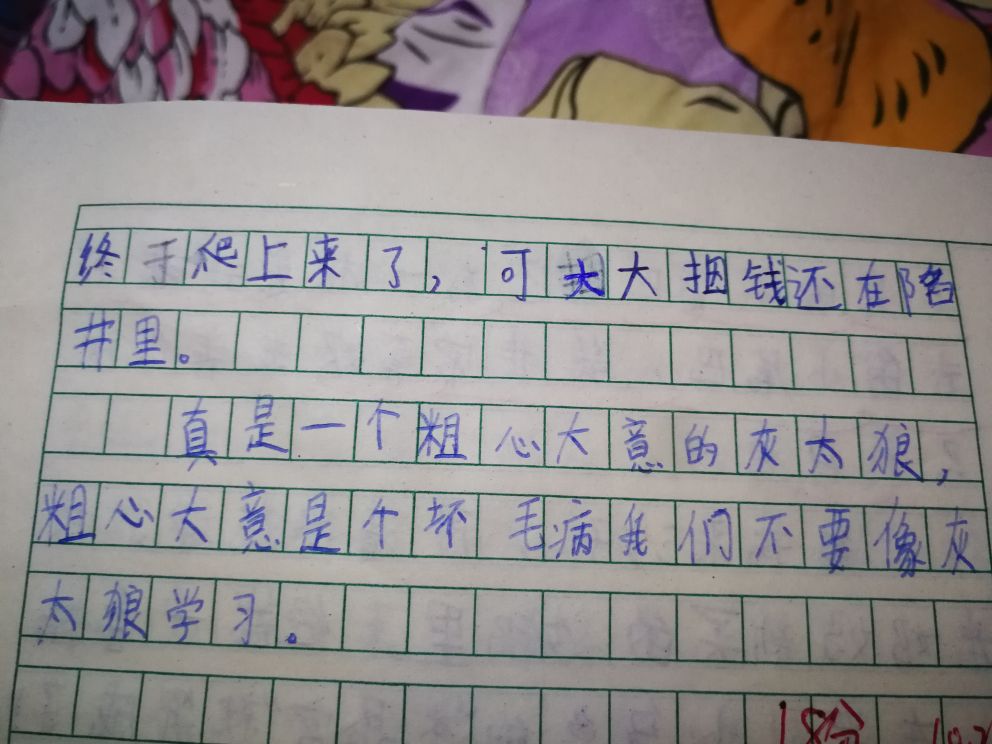 终于爬上来了，可大大捆钱还在陷
井里。
真是一个粗心大意的灰太狼，
粗心大意是个坏毛病我们不要像灰
太狼学习。
18分